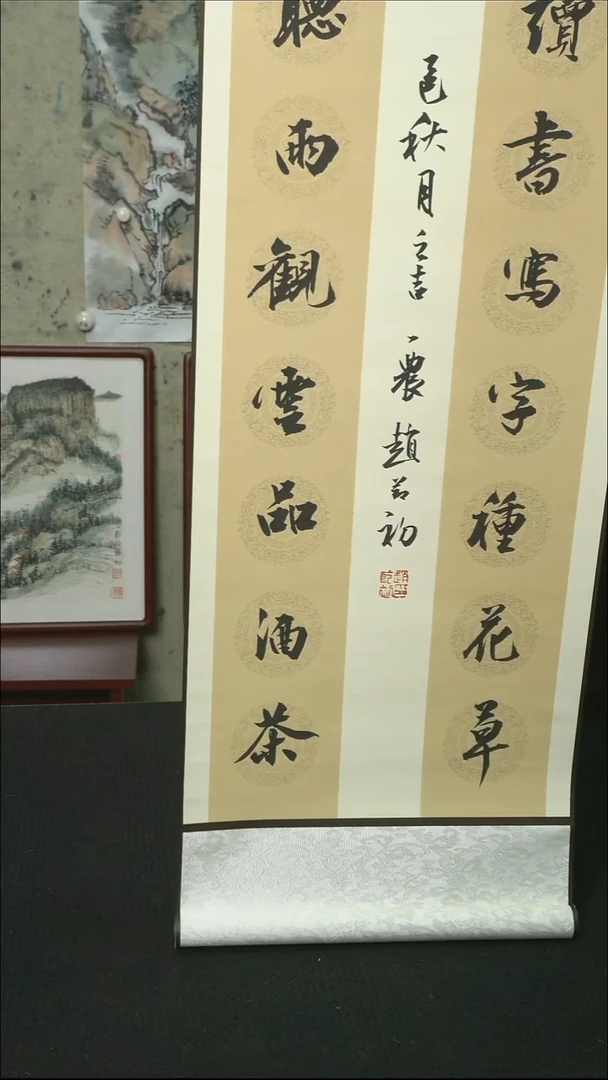 讀書寫字種花草
邑秋月之吉 一農 趙若初
聽雨觀雲品酒茶